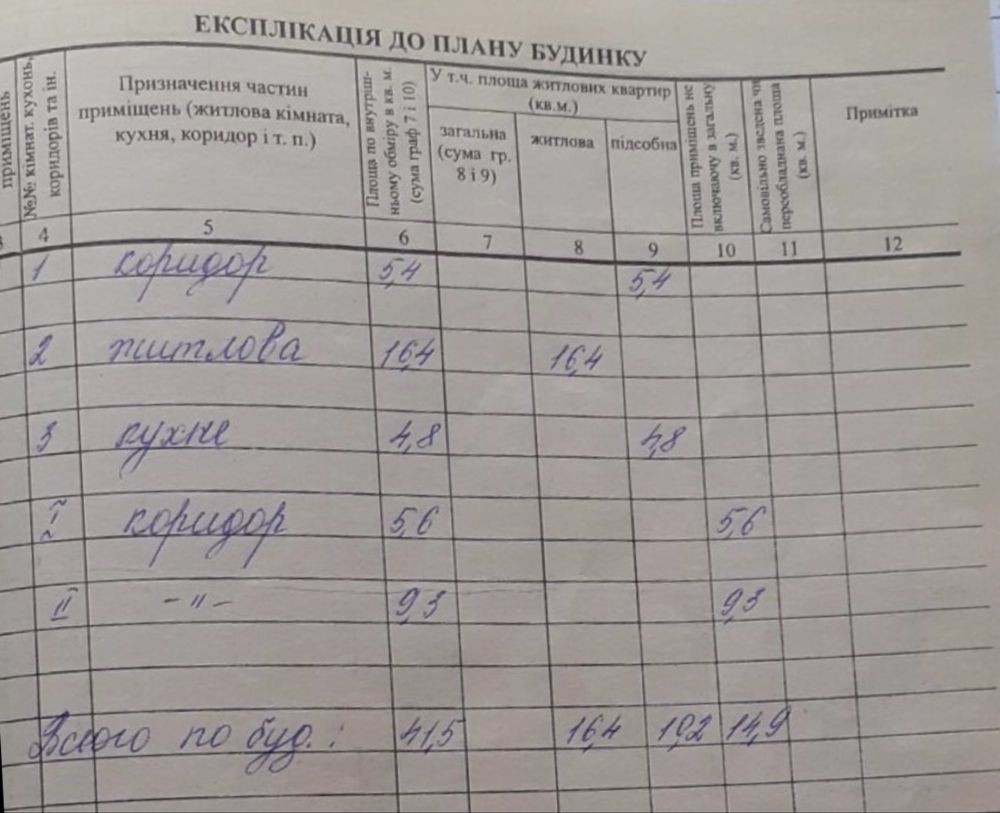 ЕКСПЛІКАЦІЯ ДО ПЛАНУ БУДИНКУ
приміщень
№№ кімнат. кухонь, коридорів та ін.
Призначення частин приміщень (житлова кімната, кухня, коридор і т. п.)
Площа по внутріш-ньому обміру в кв. м. (сума граф 7 і 10)
У т.ч. площа житлових квартир (кв.м.)
загальна (сума гр. 8 і 9)
житлова
підсобна
Площа приміщень не включаючу в загальну (кв. м.)
Самовільно зведена чи переобладнана площа (кв. м.)
Примітка
3 4 5 6 7 8 9 10 11 12
1 коридор 5,4 5,4
2 житлова 16,4 16,4
3 кухне 4,8 4,8
I коридор 5,6 5,6
II -"- 9,3 9,3
Всього по буд.: 41,5 16,4 10,2 14,9